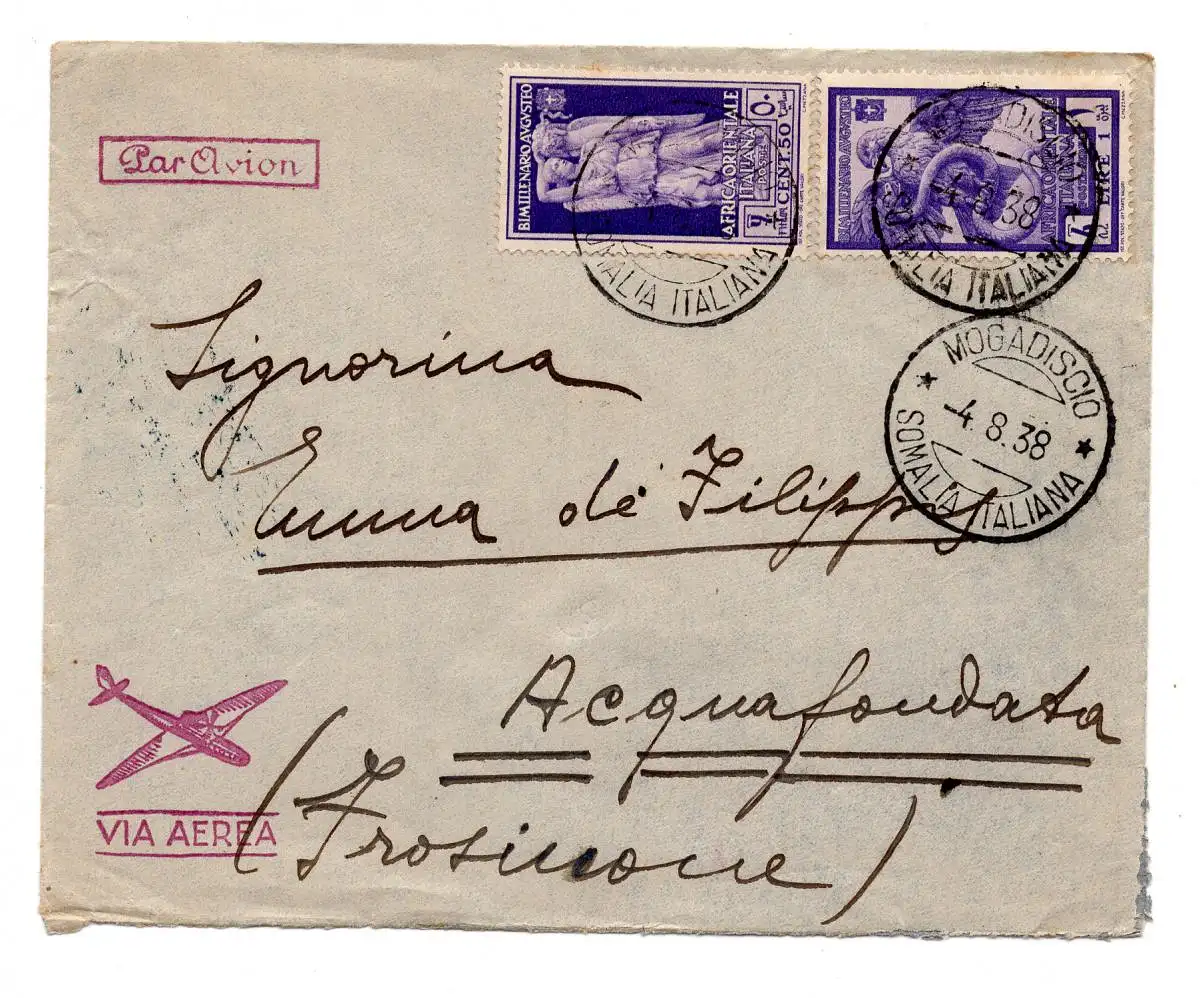 Par Avion
BIMILLENARIO AVGVSTEO
AFRICA ORIENTALE
ITALIANA
POSTE
CENT. 50
SOMALIA ITALIANA
BIMILLENARIO AVGVSTEO
AFRICA ORIENTALE
ITALIANA
LIRE 1
-4.8.38
SOMALIA ITALIANA
MOGADISCIO
-4.8.38
SOMALIA ITALIANA
Signorina
Emma de Filippis
Acquafondata
(Frosinone)
VIA AEREA